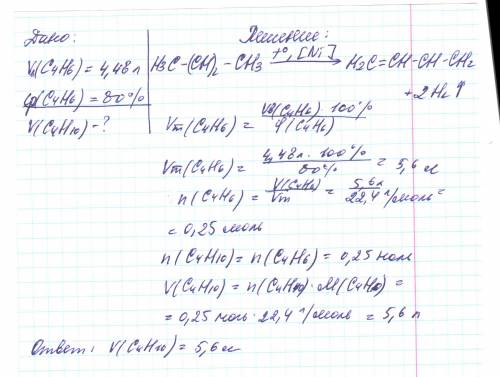 Дано:
Решение:
V(C4H6) = 4,48 л
H3C-(CH)2-CH3 t°, [Ni] → H2C=CH-CH-CH2
+ 2H2↑
φ(C4H6) = 80%
V(C4H10) - ?
Vт(C4H6) = Vп(C4H6) 100% / φ(C4H6)
Vт(C4H6) = 4,48 л · 100% / 80% = 5,6 л
n(C4H6) = V(C4H6) / Vm = 5,6 л / 22,4 л/моль =
= 0,25 моль
n(C4H10) = n(C4H6) = 0,25 моль
V(C4H10) = n(C4H10) · M(C4H10) =
= 0,25 моль · 22,4 л/моль = 5,6 л
Ответ: V(C4H10) = 5,6 л